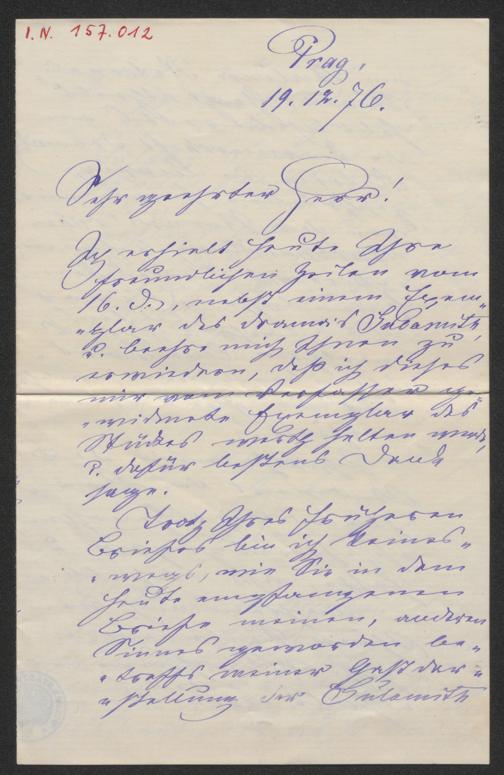 I.N. 157.012
Prag,
19. 12. 76.
Sehr geehrter Herr!
Ich erhielt heute Ihre
freundlichen Zeilen vom
16. d., nebst einem Exem-
-plar des Dramas Sulamith,
u. beehre mich Ihnen zu
erwiedern, daß ich dieses
mir vom Verfasser ge-
-widmete Exemplar des
Stückes werth halten werde,
u. dafür bestens Dank
sage.
Trotz Ihres früheren
Briefes bin ich keines-
-wegs, wie Sie in dem
heute empfangenen
Briefe meinen, anderen
Sinnes geworden be-
-treffs meiner Gastdar-
-stellung der Sulamith